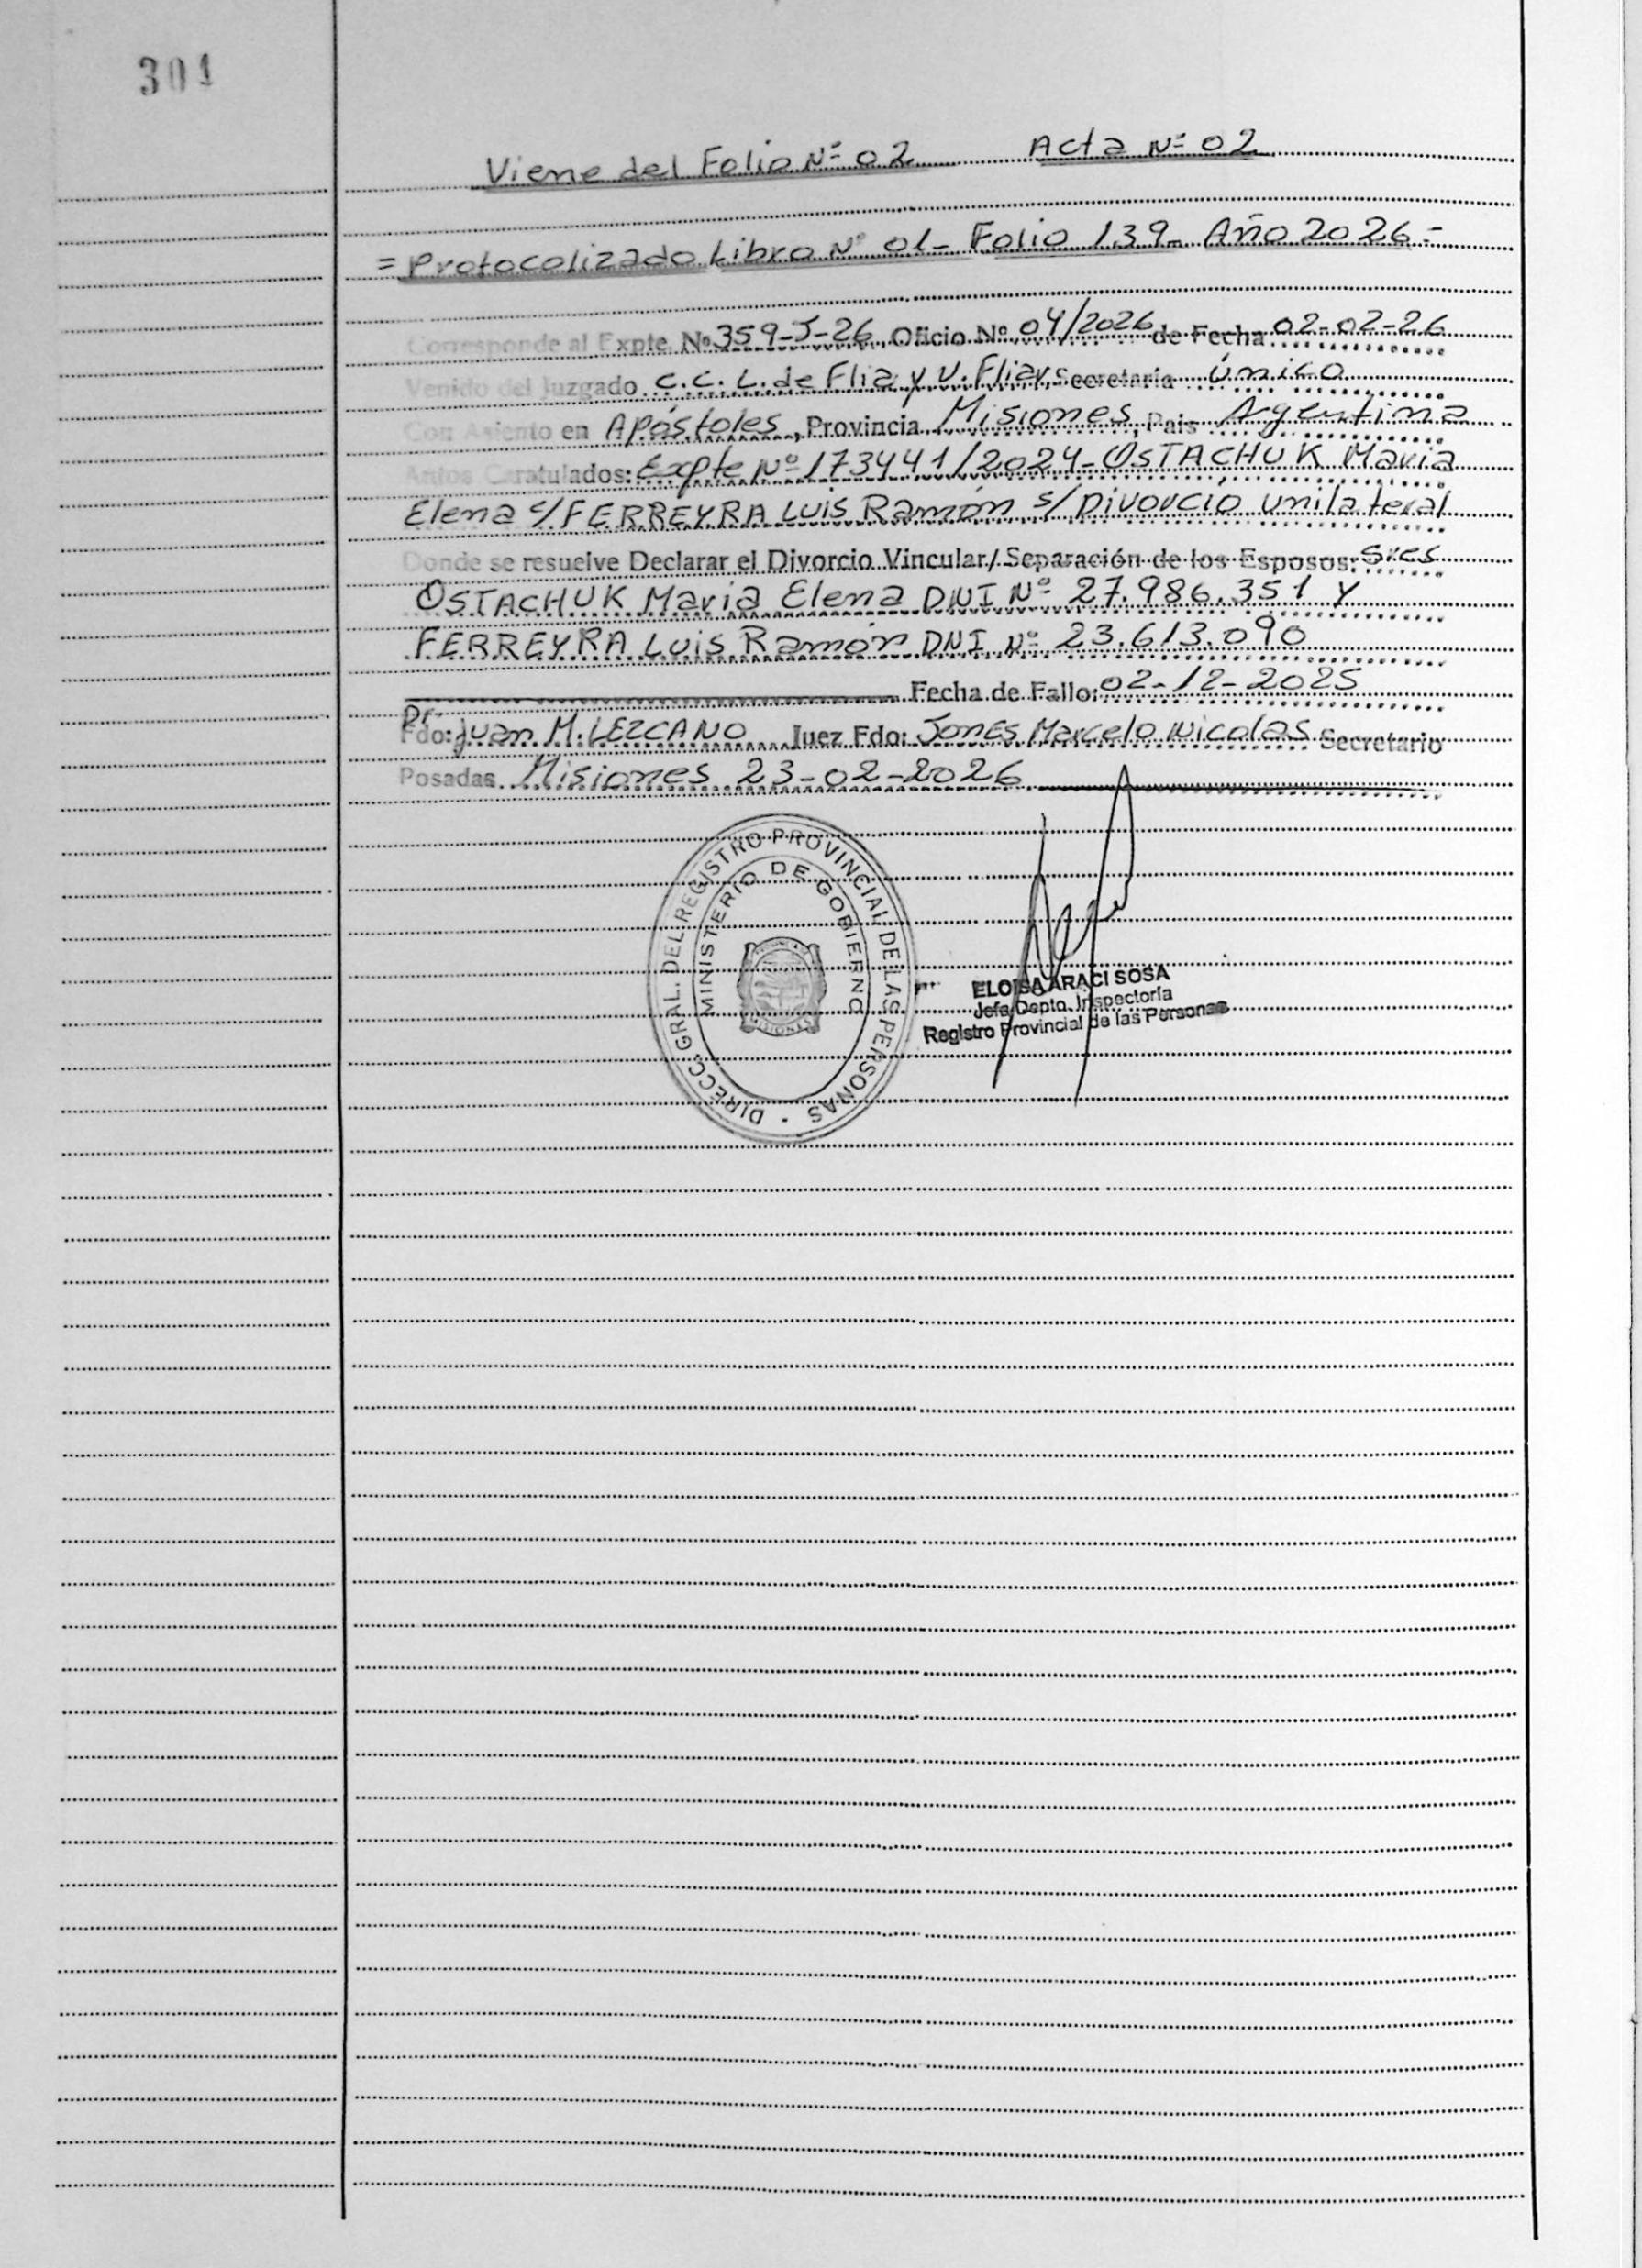 301
Viene del Folio Nº 02 Acta Nº 02
= Protocolizado Libro Nº 01- Folio 139- Año 2026 =
Corresponde al Expte. Nº 359-J-26, Oficio Nº 04/2026 de Fecha 02-02-26
Venido del Juzgado C.C.L. de Flia y V. Fliar, Secretaría Única
Con Asiento en Apóstoles, Provincia Misiones, País Argentina
Autos Caratulados: Expte Nº 173441/2024-OSTACHUK Maria
Elena c/ FERREYRA Luis Ramón s/ Divorcio unilateral
Donde se resuelve Declarar el Divorcio Vincular/ Separación de los Esposos: Sres
OSTACHUK Maria Elena DNI Nº 27.986.351 y
FERREYRA Luis Ramón DNI Nº 23.613.090
Fecha de Fallo: 02-12-2025
Fdo: Dr. Juan M. LEZCANO Juez Fdo: Jones Marcelo Nicolas Secretario
Posadas Misiones 23-02-2026
DIRECC. GRAL. DEL REGISTRO PROVINCIAL DE LAS PERSONAS
MINISTERIO DE GOBIERNO
MISIONES
ELOISA ARACI SOSA
Jefa Depto. Inspectoría
Registro Provincial de las Personas